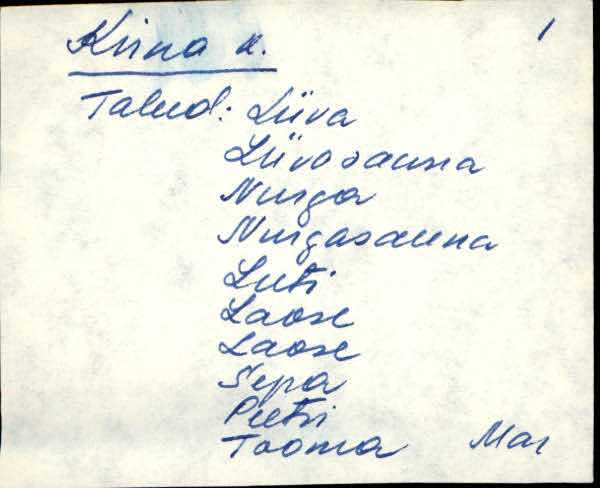 Kiina k. 1
Talud: Liiva
Liivasauna
Nurga
Nurgasauna
Luti
Laose
Laose
Sepa
Peetri
Tooma Mar